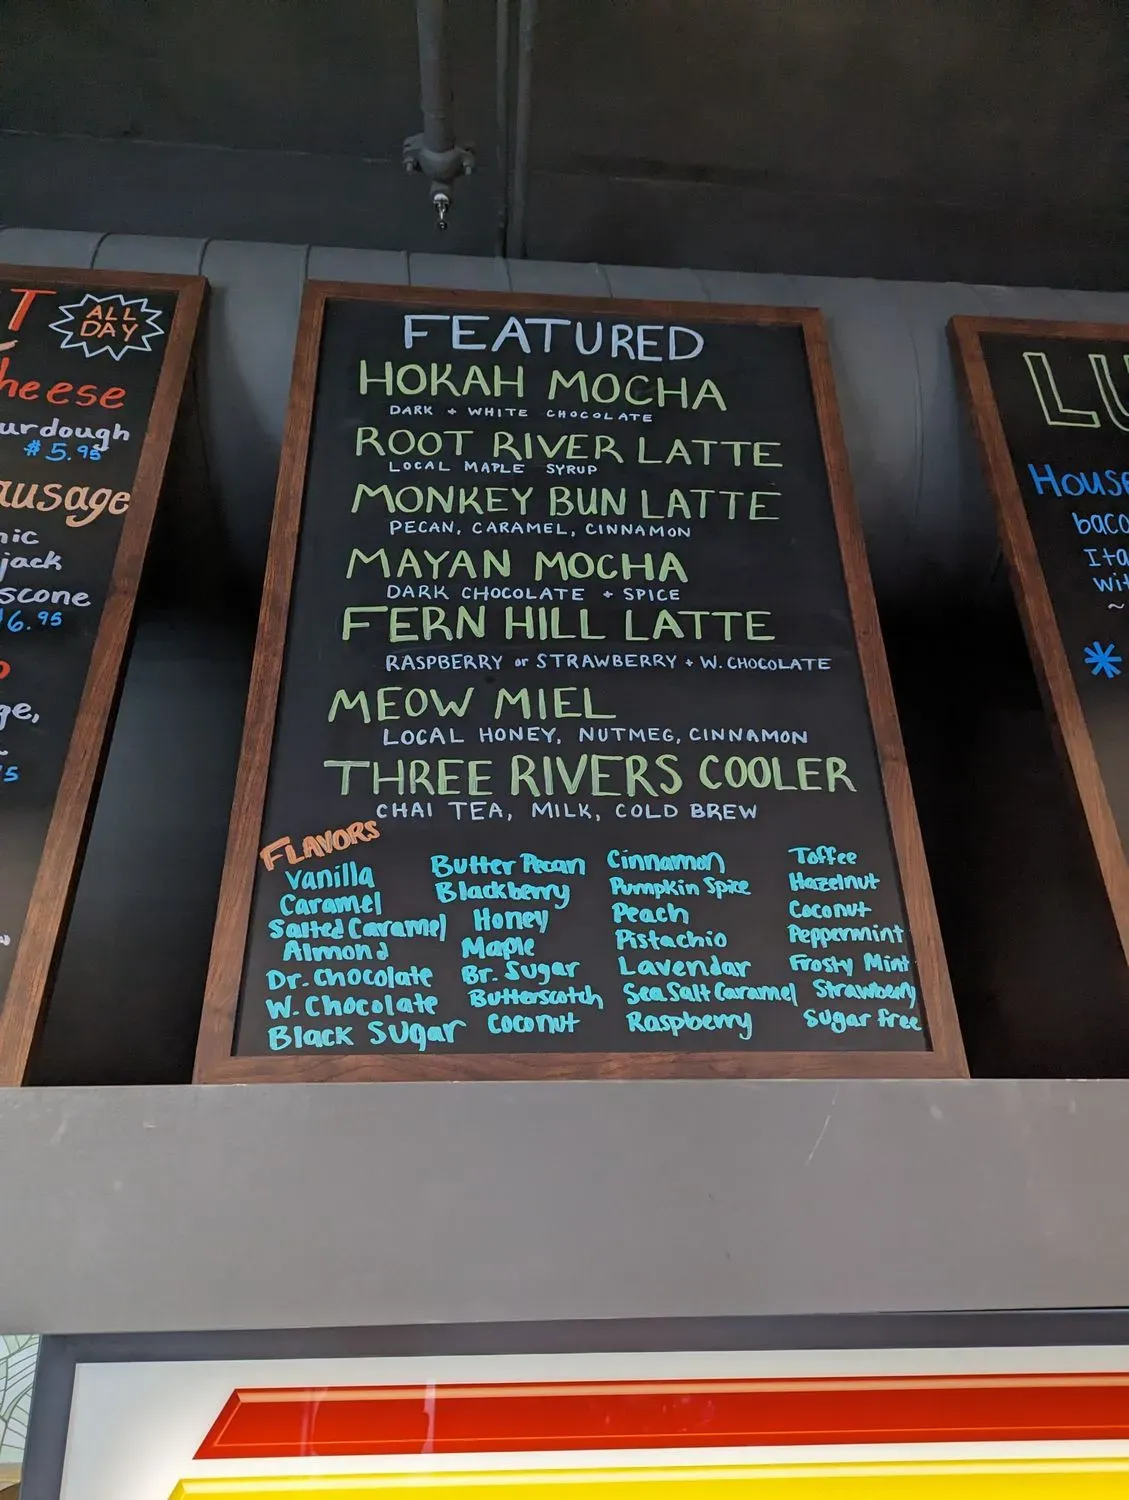 T
ALL
DAY
heese
urdough
$5.95
ausage
nic
jack
scone
6.95
ge,
FEATURED
HOKAH MOCHA
DARK + WHITE CHOCOLATE
ROOT RIVER LATTE
LOCAL MAPLE SYRUP
MONKEY BUN LATTE
PECAN, CARAMEL, CINNAMON
MAYAN MOCHA
DARK CHOCOLATE + SPICE
FERN HILL LATTE
RASPBERRY or STRAWBERRY + W. CHOCOLATE
MEOW MIEL
LOCAL HONEY, NUTMEG, CINNAMON
THREE RIVERS COOLER
CHAI TEA, MILK, COLD BREW
FLAVORS
Vanilla
Caramel
Salted Caramel
Almond
Dr. Chocolate
W. Chocolate
Black Sugar
Butter Pecan
Blackberry
Honey
Maple
Br. Sugar
Butterscotch
Coconut
Cinnamon
Pumpkin Spice
Peach
Pistachio
Lavendar
Sea Salt Caramel
Raspberry
Toffee
Hazelnut
Coconut
Peppermint
Frosty Mint
Strawberry
Sugar free
LU
House
baco
Ita
wit